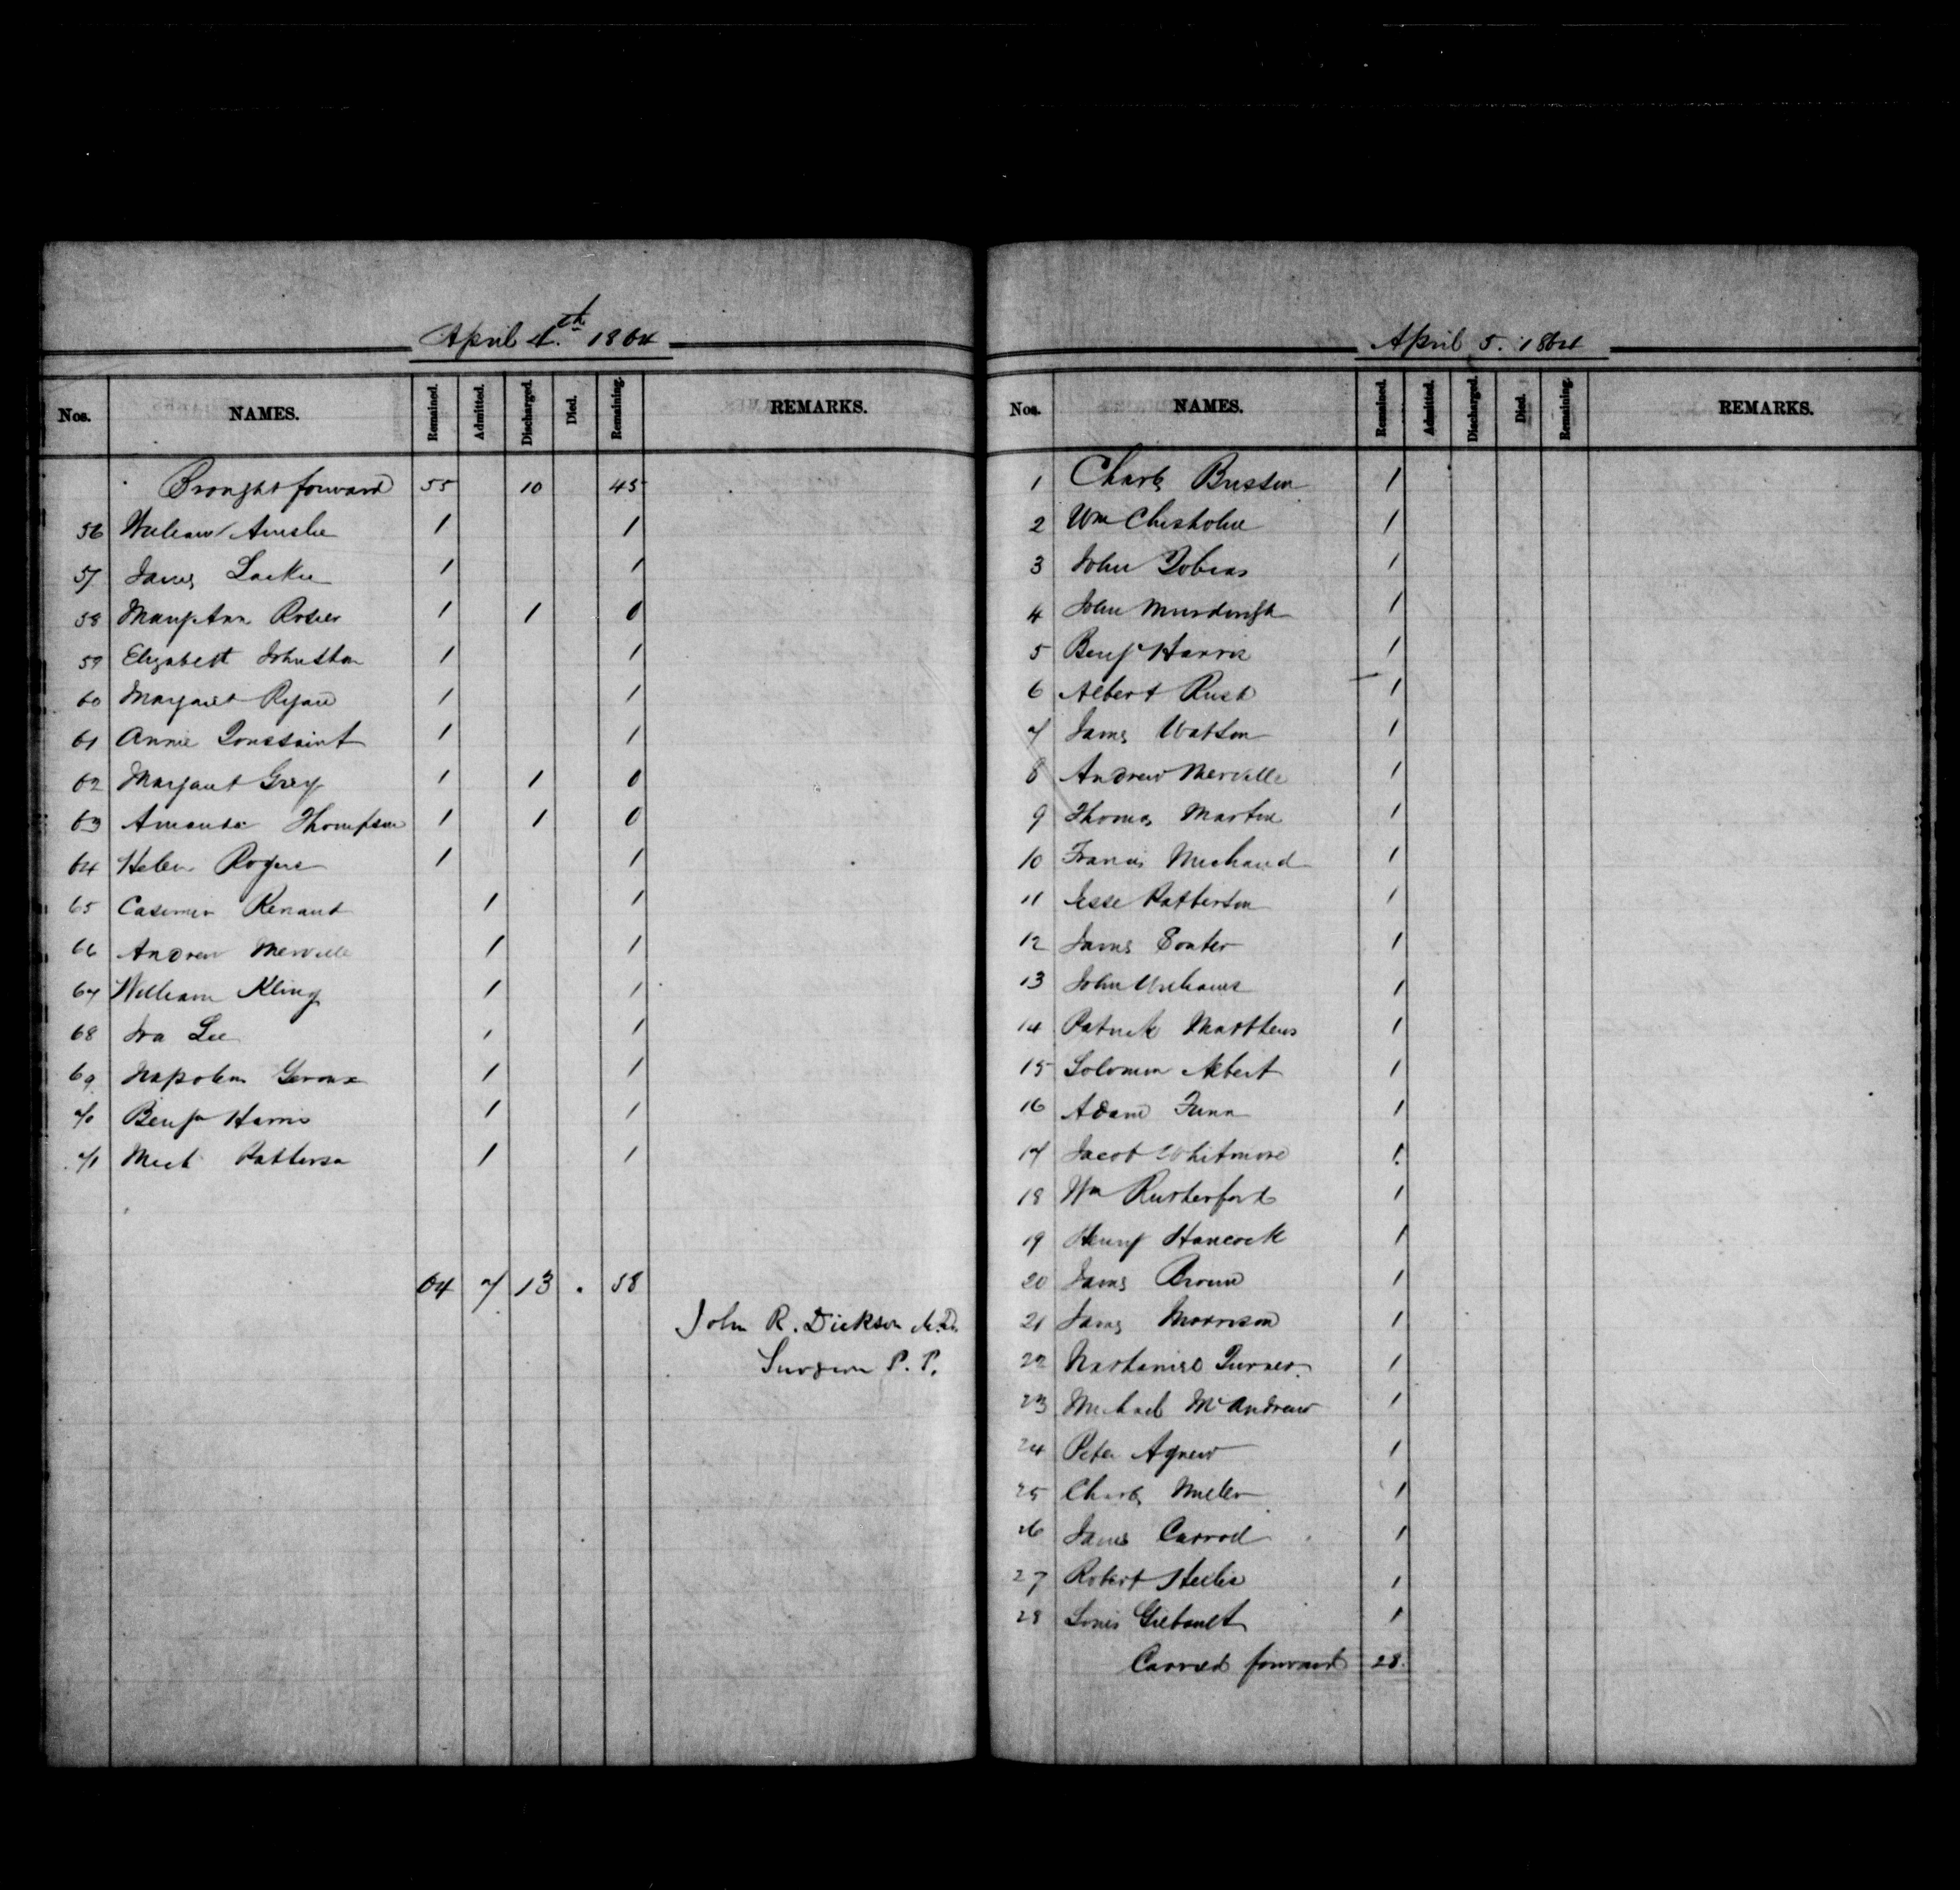 April 4th. 1864
Nos. NAMES. Remained. Admitted. Discharged. Died. Remaining. REMARKS.
Brought forward 55 10 45
56 William Ainslie 1 1
57 James Lackie 1 1
58 Mary Ann Rosier 1 1 0
59 Elizabeth Johnston 1 1
60 Margaret Ryan 1 1
61 Annie Toussaint 1 1
62 Margaret Grey 1 1 0
63 Amanda Thompson 1 1 0
64 Helen Rogers 1 1
65 Casimir Renaud 1 1
66 Andrew Merville 1 1
67 William Kling 1 1
68 Ira Lee 1 1
69 Napoleon Geroux 1 1
70 Benjn Harris 1 1
71 Patterson 1 1
64 7 13 . 58
John R. Dickson M.D.
Surgeon P. P.
April 5. 1864
Nos. NAMES. Remained. Admitted. Discharged. Died. Remaining. REMARKS.
1 Charles 1
2 Wm Chisholm 1
3 John Tobias 1
4 John Murdough 1
5 Benjn Harris 1
6 Albert Rush 1
7 James Watson 1
8 Andrew Merville 1
9 Thomas Martin 1
10 Francis Michaud 1
11 Jesse Patterson 1
12 James 1
13 John Williams 1
14 Patrick Matthews 1
15 Solomon Albert 1
16 Adam 1
17 Jacob Whitmore 1
18 Wm Rutherford 1
19 Henry Hancock 1
20 James Brown 1
21 James Morrison 1
22 Nathaniel Turner 1
23 Michael McAndrew 1
24 Peter Agnew 1
25 Charles Miller 1
26 James Carroll 1
27 Robert 1
28 Louis Gilbault 1
Carried forward 28.